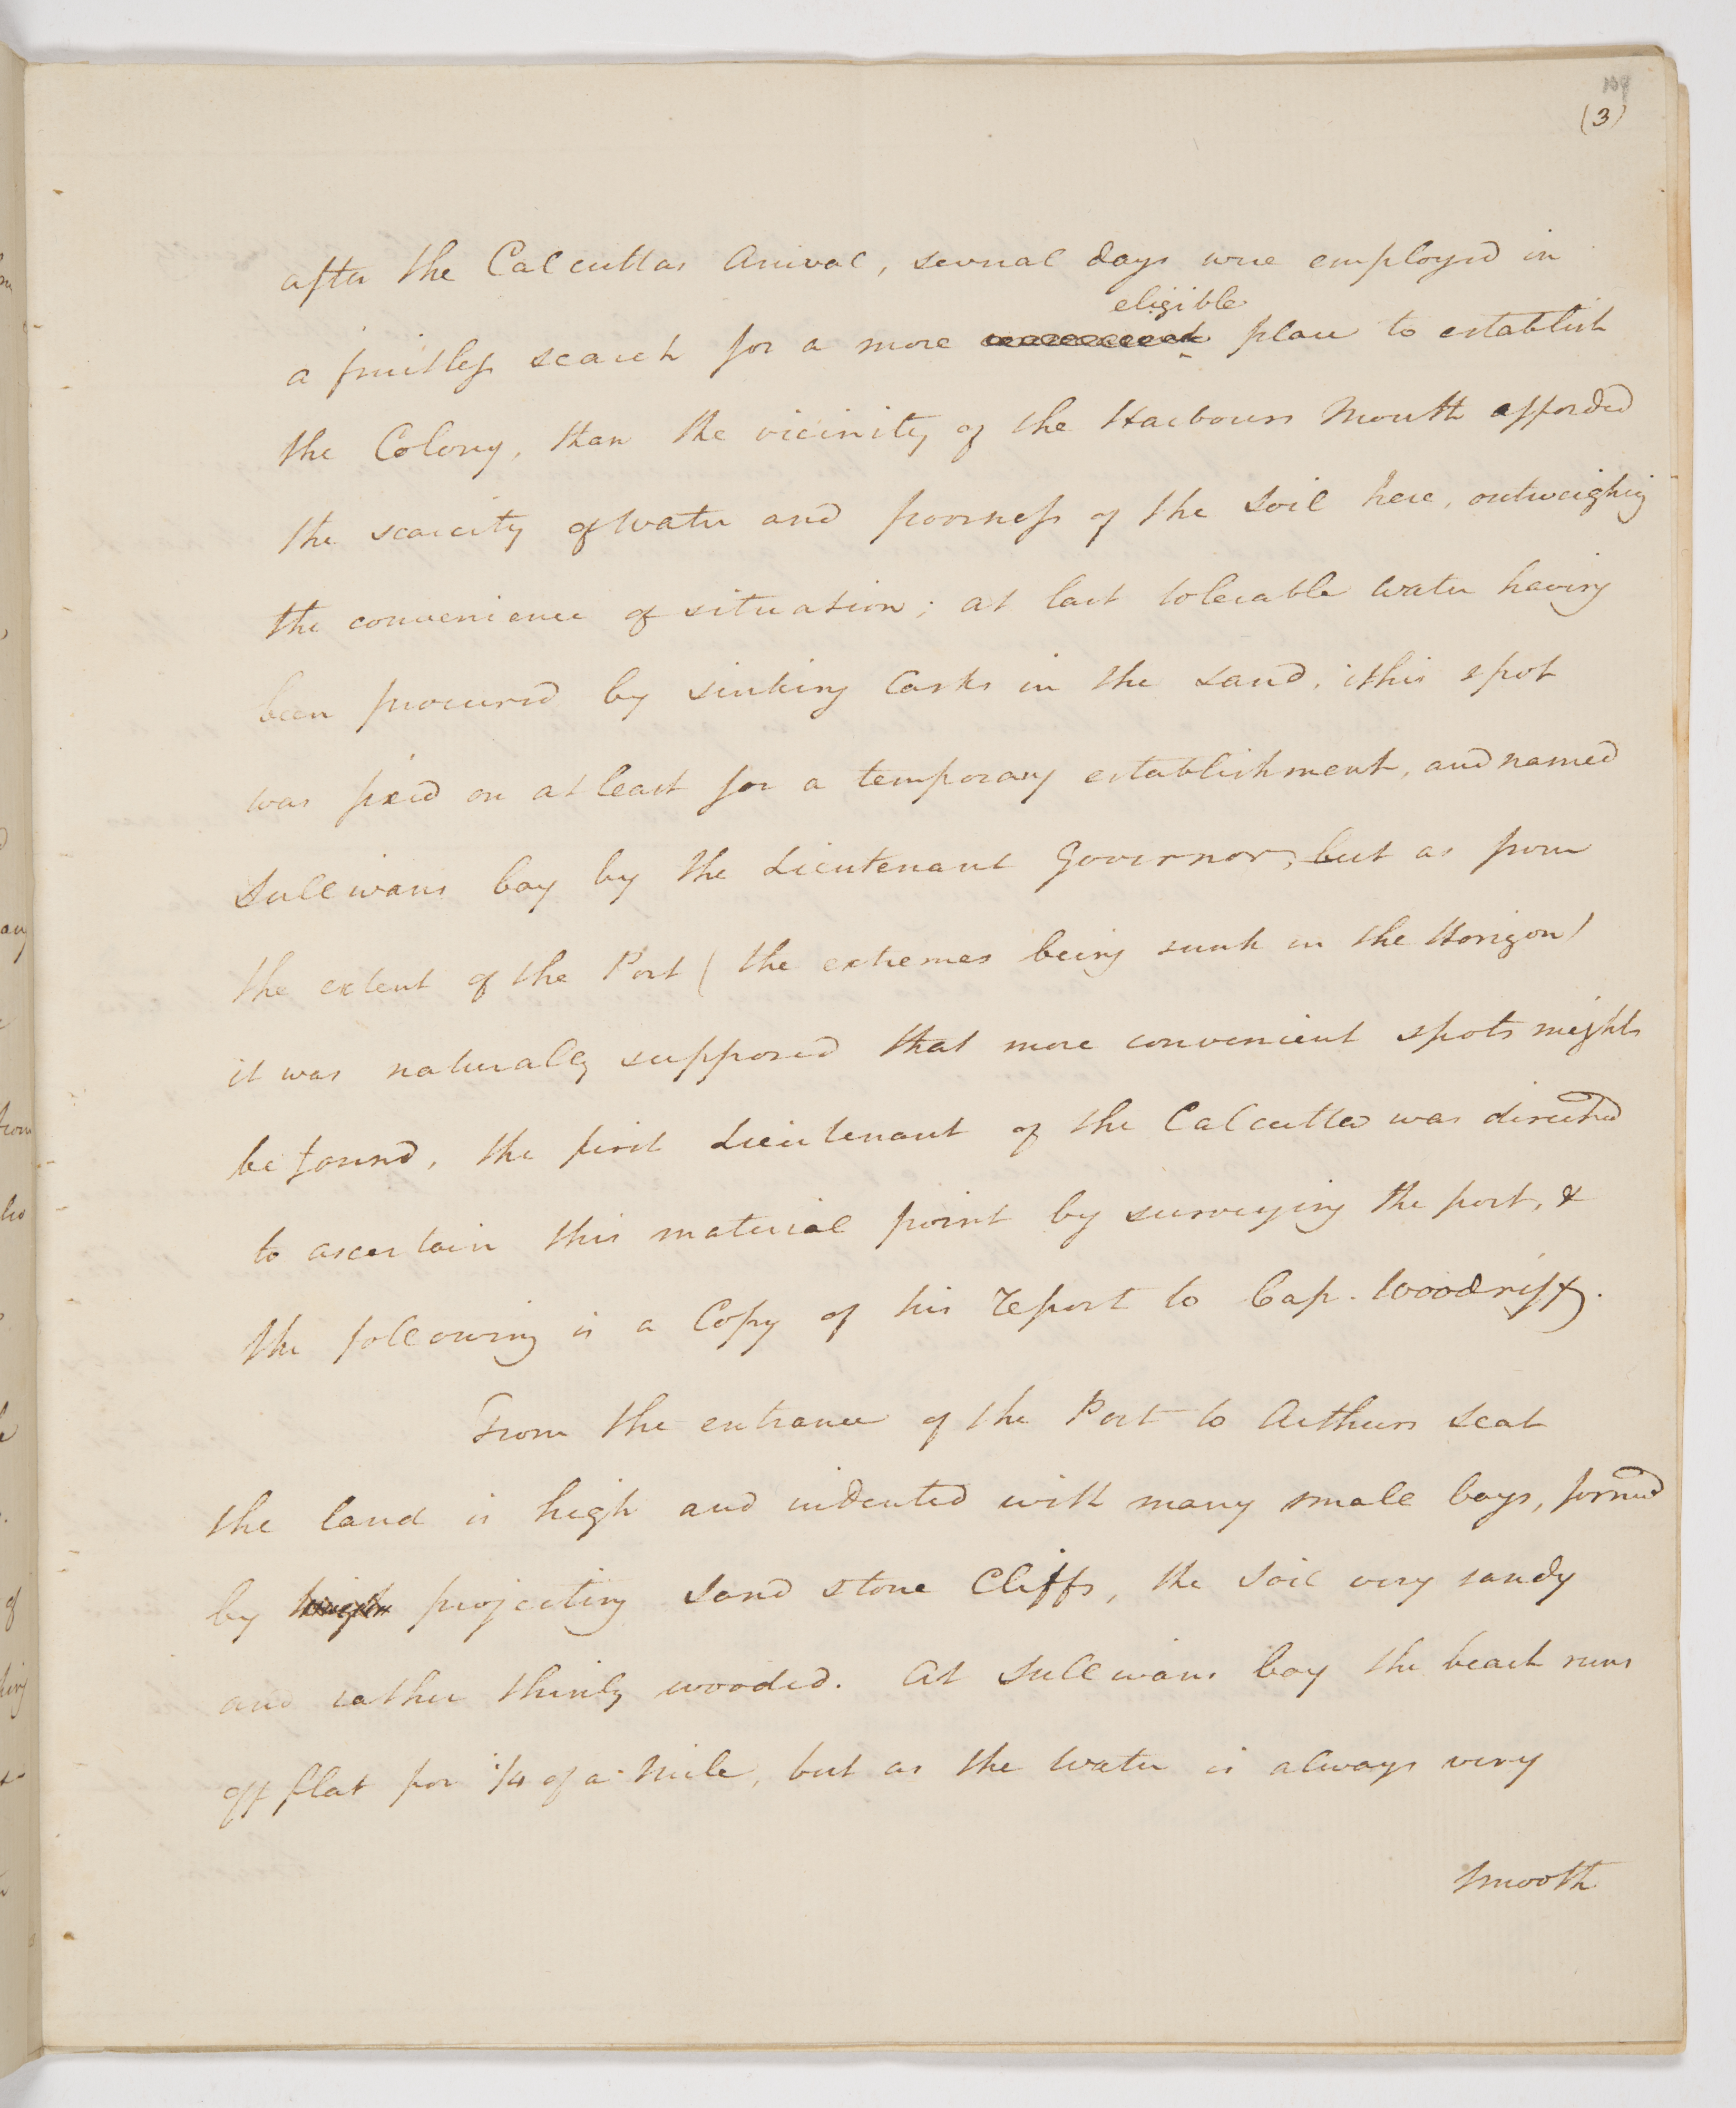 (3)
after the Calcuttas Arrival, several days were employed in
eligible
a fruitless search for a more place to establish
the Colony, than the vicinity of the Harbours Mouth afforded
the scarcity of Water and poorness of the Soil here, outweighig
the convenience of situation; at last tolerable water having
been procured by sinking Casks in the Sand, this spot
was fixed on at least for a temporary establishment, and named
Sullivans bay by the Lieutenant Governor, but as from
the extent of the Port (the extremes being sunk in the Horizon)
it was naturally supposed that more convenient spots might
be found, the first Lieutenant of the Calcutta was directed
to ascertain this material point by surveying the port, &
the following is a Copy of his report to Cap. Woodriff.
From the entrance of the Port to Arthurs Seat
the land is high and indented with many small bays, formed
by projecting Sand stone Cliffs, the Soil very sandy
and rather thinly wooded. At Sullivans bay the beach runs
off flat for 1/4 of a Mile, but as the Water is always very
smooth